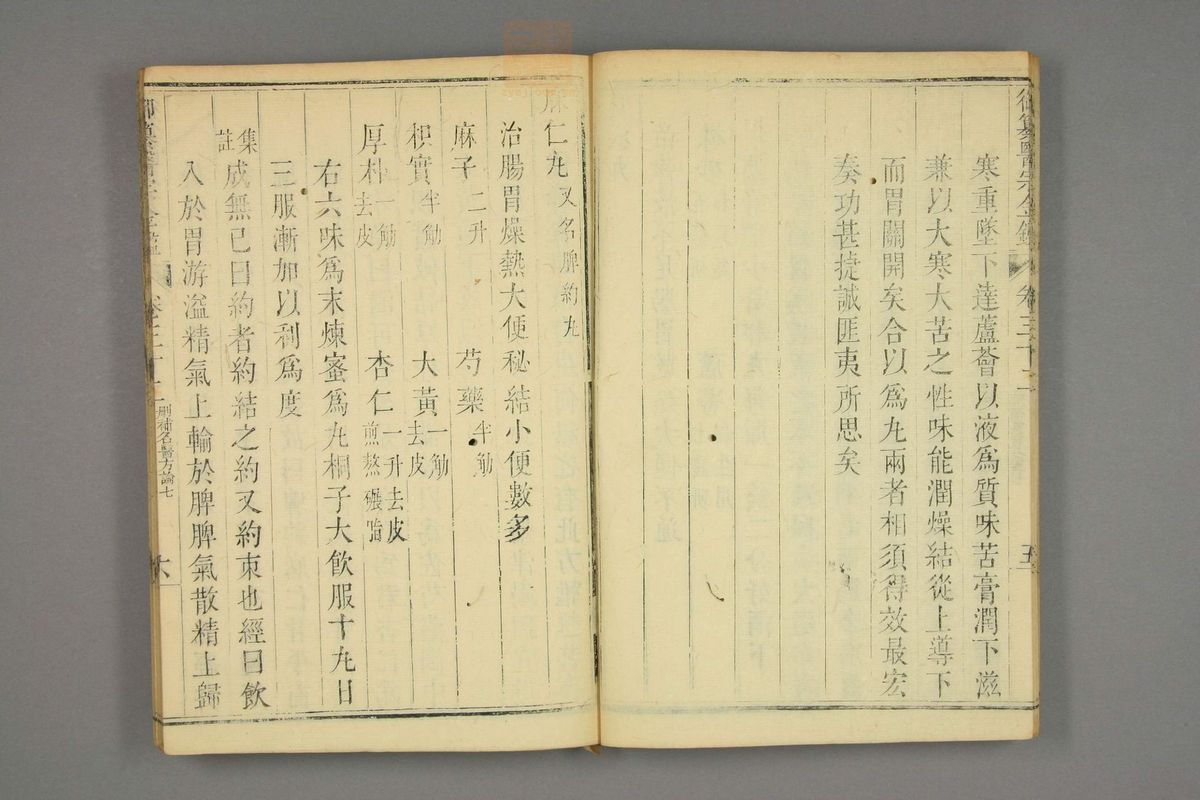 御纂醫宗金鑑 卷三十二 五
寒重墜下達蘆薈以液爲質味苦膏潤下滋
兼以大寒大苦之性味能潤燥結從上導下
而胃關開矣合以爲丸兩者相須得效最宏
奏功甚捷誠匪夷所思矣
麻仁丸 又名脾約丸
治腸胃燥熱大便秘結小便數多
麻子 二升 芍藥 半觔
枳實 半觔 大黃 一觔去皮
厚朴 一觔去皮 杏仁 一升去皮煎熬碾脂
右六味爲末煉蜜爲丸桐子大飲服十丸日
三服漸加以利爲度
集註 成無己曰約者約結之約又約束也經曰飲
入於胃游溢精氣上輸於脾脾氣散精上歸
御纂醫宗金鑑 卷三十二 刪補名醫方論七 六